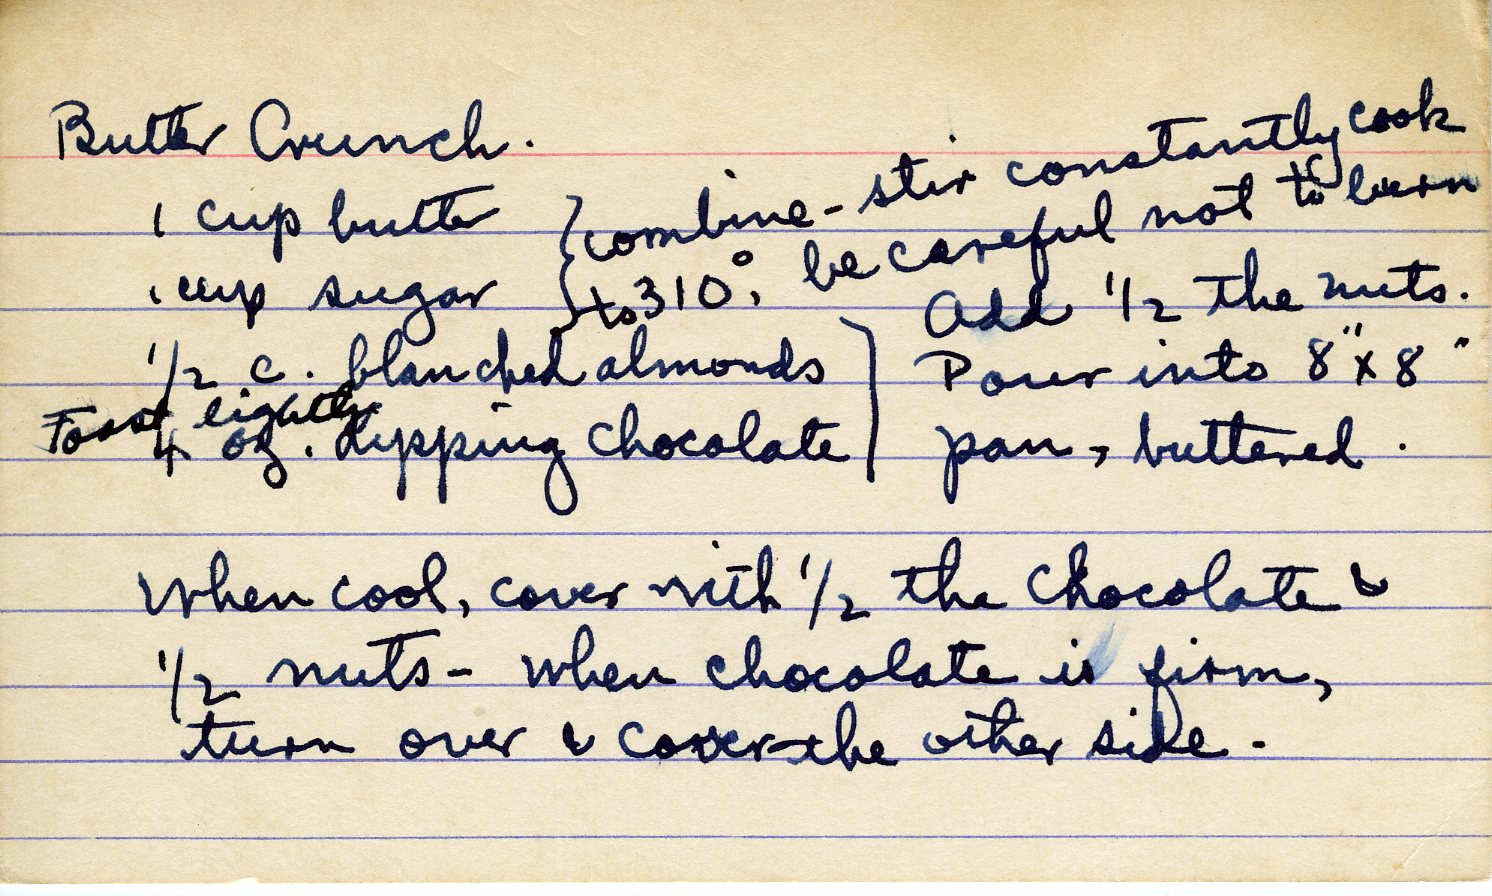 Butter Crunch.
1 cup butter } combine - stir constantly cook
1 cup sugar } to 310°. be careful not to burn
1/2 c. blanched almonds } Add 1/2 the nuts.
Toast lightly
4 oz. dipping chocolate } Pour into 8" x 8"
pan, buttered.
When cool, cover with 1/2 the chocolate &
1/2 nuts - when chocolate is firm,
turn over & cover the other side.